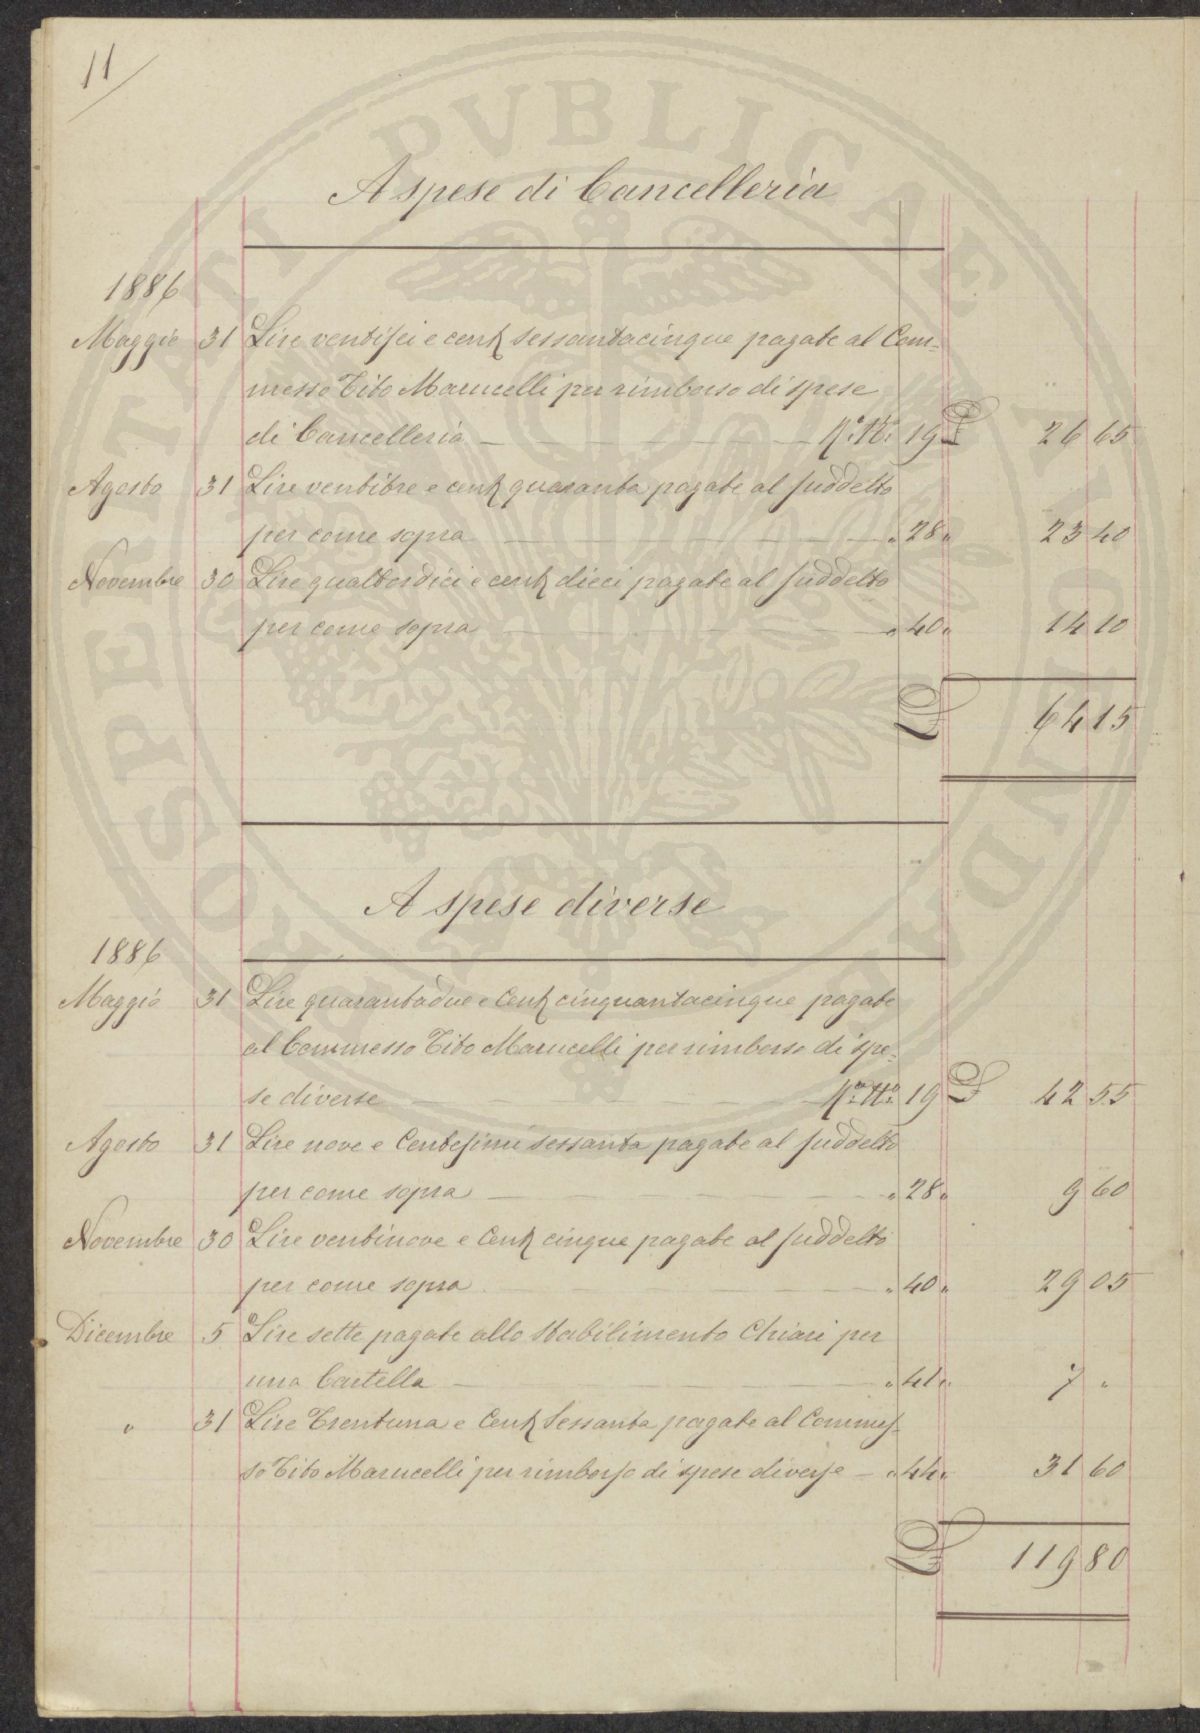 11
A spese di Cancelleria
1886
Maggio 31 Lire ventisei e cent sessantacinque pagate al Com=
messo Tito Marucelli per rimborso di spese
di Cancelleria 19 £ 26 65
Agosto 31 Lire ventitre e cent quaranta pagate al suddetto
per come sopra " 28 " 23 40
Novembre 30 Lire quattordici e cent dieci pagate al suddetto
per come sopra " 40 " 14 10
£ 64 15
A spese diverse
1886
Maggio 31 Lire quarantadue e Cent cinquantacinque pagate
al Commesso Tito Marucelli per rimborso di spe=
se diverse 19 £ 42 55
Agosto 31 Lire nove e Centesimi sessanta pagate al suddetto
per come sopra " 28 " 9 60
Novembre 30 Lire ventinove e Cent cinque pagate al suddetto
per come sopra " 40 " 29 05
Dicembre 5 Lire sette pagate allo Stabilimento Chiari per
una Cartella " 41 " 7 "
" 31 Lire Trentuna e Cent Sessanta pagate al Commes=
so Tito Marucelli per rimborso di spese diverse " 44 " 31 60
£ 119 80
PROSPERITATI PVBLICAE AVGENDAE